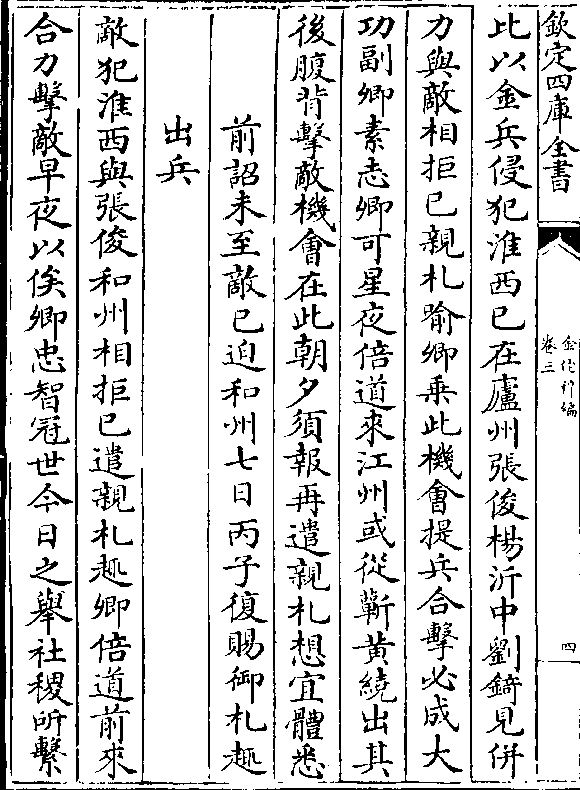 欽定四庫全書
金佗稡編
卷三
四
此以金兵侵犯淮西已在廬州張俊楊沂中劉錡見併
力與敵相拒已親札喻卿乗此機會提兵合擊必成大
功副卿素志卿可星夜倍道來江州或從蘄黄繞出其
後腹背擊敵機會在此朝夕須報再遣親札想宜體悉
前詔未至敵已迫和州七日丙子復賜御札趣
出兵
敵犯淮西與張俊和州相拒已遣親札趣卿倍道前來
合力擊敵早夜以俟卿忠智冠世今日之舉社稷所繫